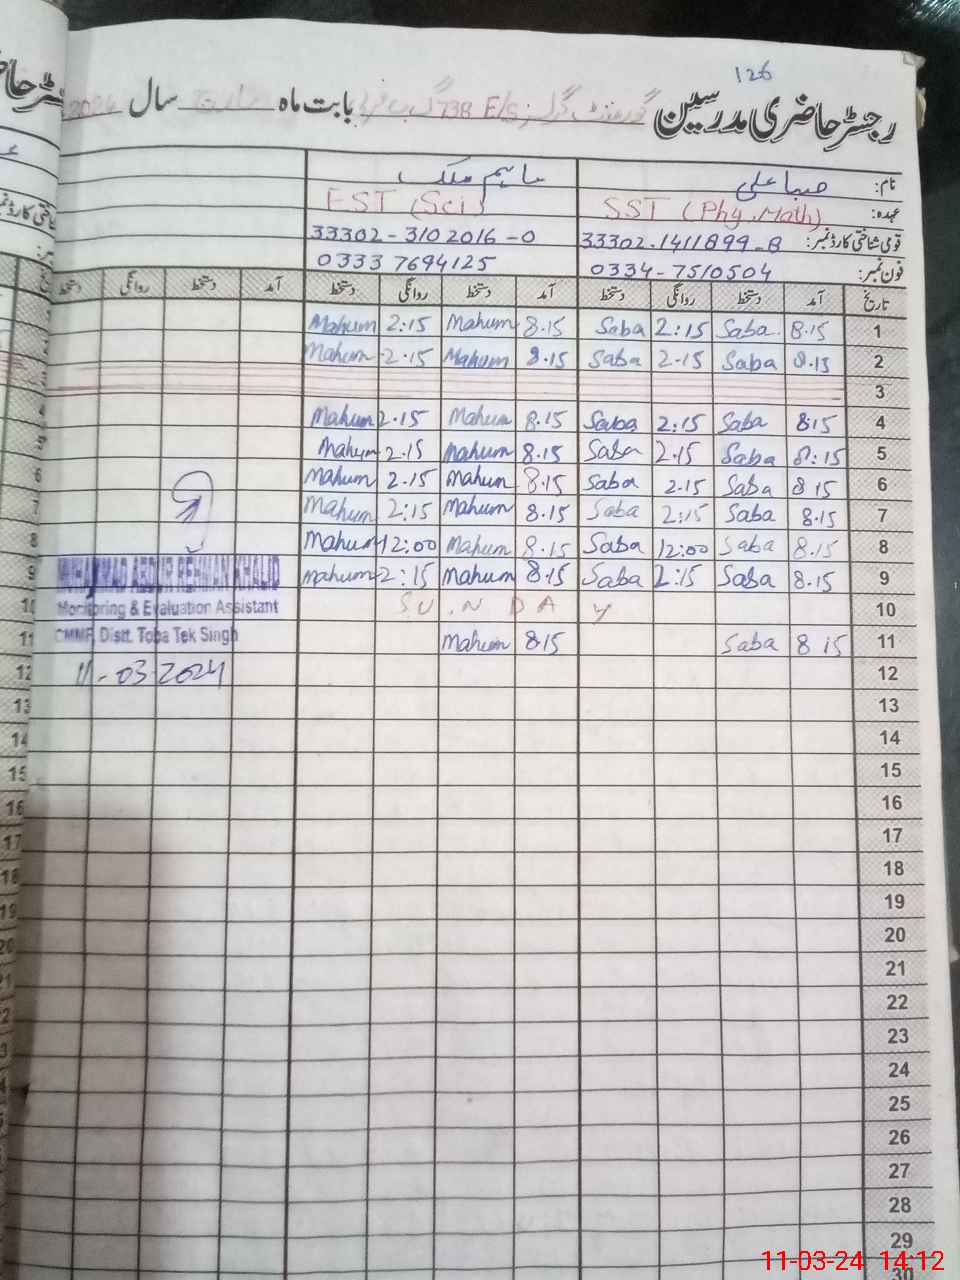 126
رجسٹر حاضری مدرسین گورنمنٹ گرلز E/S 738 گ ب بابت ماہ سال 2024
نام: صبا علی ماہم ملک
عہدہ: SST (Phy.Math) EST (Sci)
قومی شناختی کارڈ نمبر: 33302-1411899-8 33302-3102016-0
فون نمبر: 0334-7510504 03337694125
تاریخ آمد دستخط روانگی دستخط آمد دستخط روانگی دستخط آمد دستخط روانگی دستخط
Mahum 2:15 Mahum 8.15 Saba 2:15 Saba 8.15 1
Mahum 2.15 Mahum 8.15 Saba 2.15 Saba 8.15 2
3
Mahum 2.15 Mahum 8.15 Saba 2:15 Saba 8:15 4
Mahum 2.15 Mahum 8.15 Saba 2.15 Saba 8:15 5
Mahum 2.15 Mahum 8.15 Saba 2.15 Saba 8.15 6
Mahum 2:15 Mahum 8.15 Saba 2:15 Saba 8.15 7
Mahum 12:00 Mahum 8.15 Saba 12:00 Saba 8.15 8
Mahum 2:15 Mahum 8.15 Saba 2:15 Saba 8.15 9
SUNDAY 10
Mahum 8.15 Saba 8.15 11
12
13
14
15
16
17
18
19
20
21
22
23
24
25
26
27
28
29
30
MUHAMMAD ABDUR REHMAN KHALID
Monitoring & Evaluation Assistant
CMMF, Distt. Toba Tek Singh
11-03-2024
11-03-24 14:12